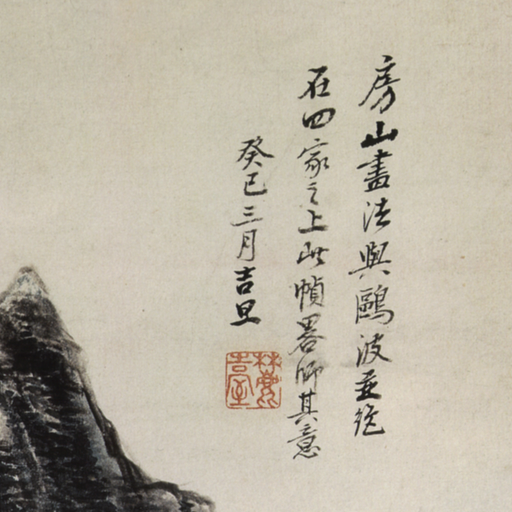 房山畫法與鷗波並絶
在四家之上此幀畧師其意
癸巳三月吉旦